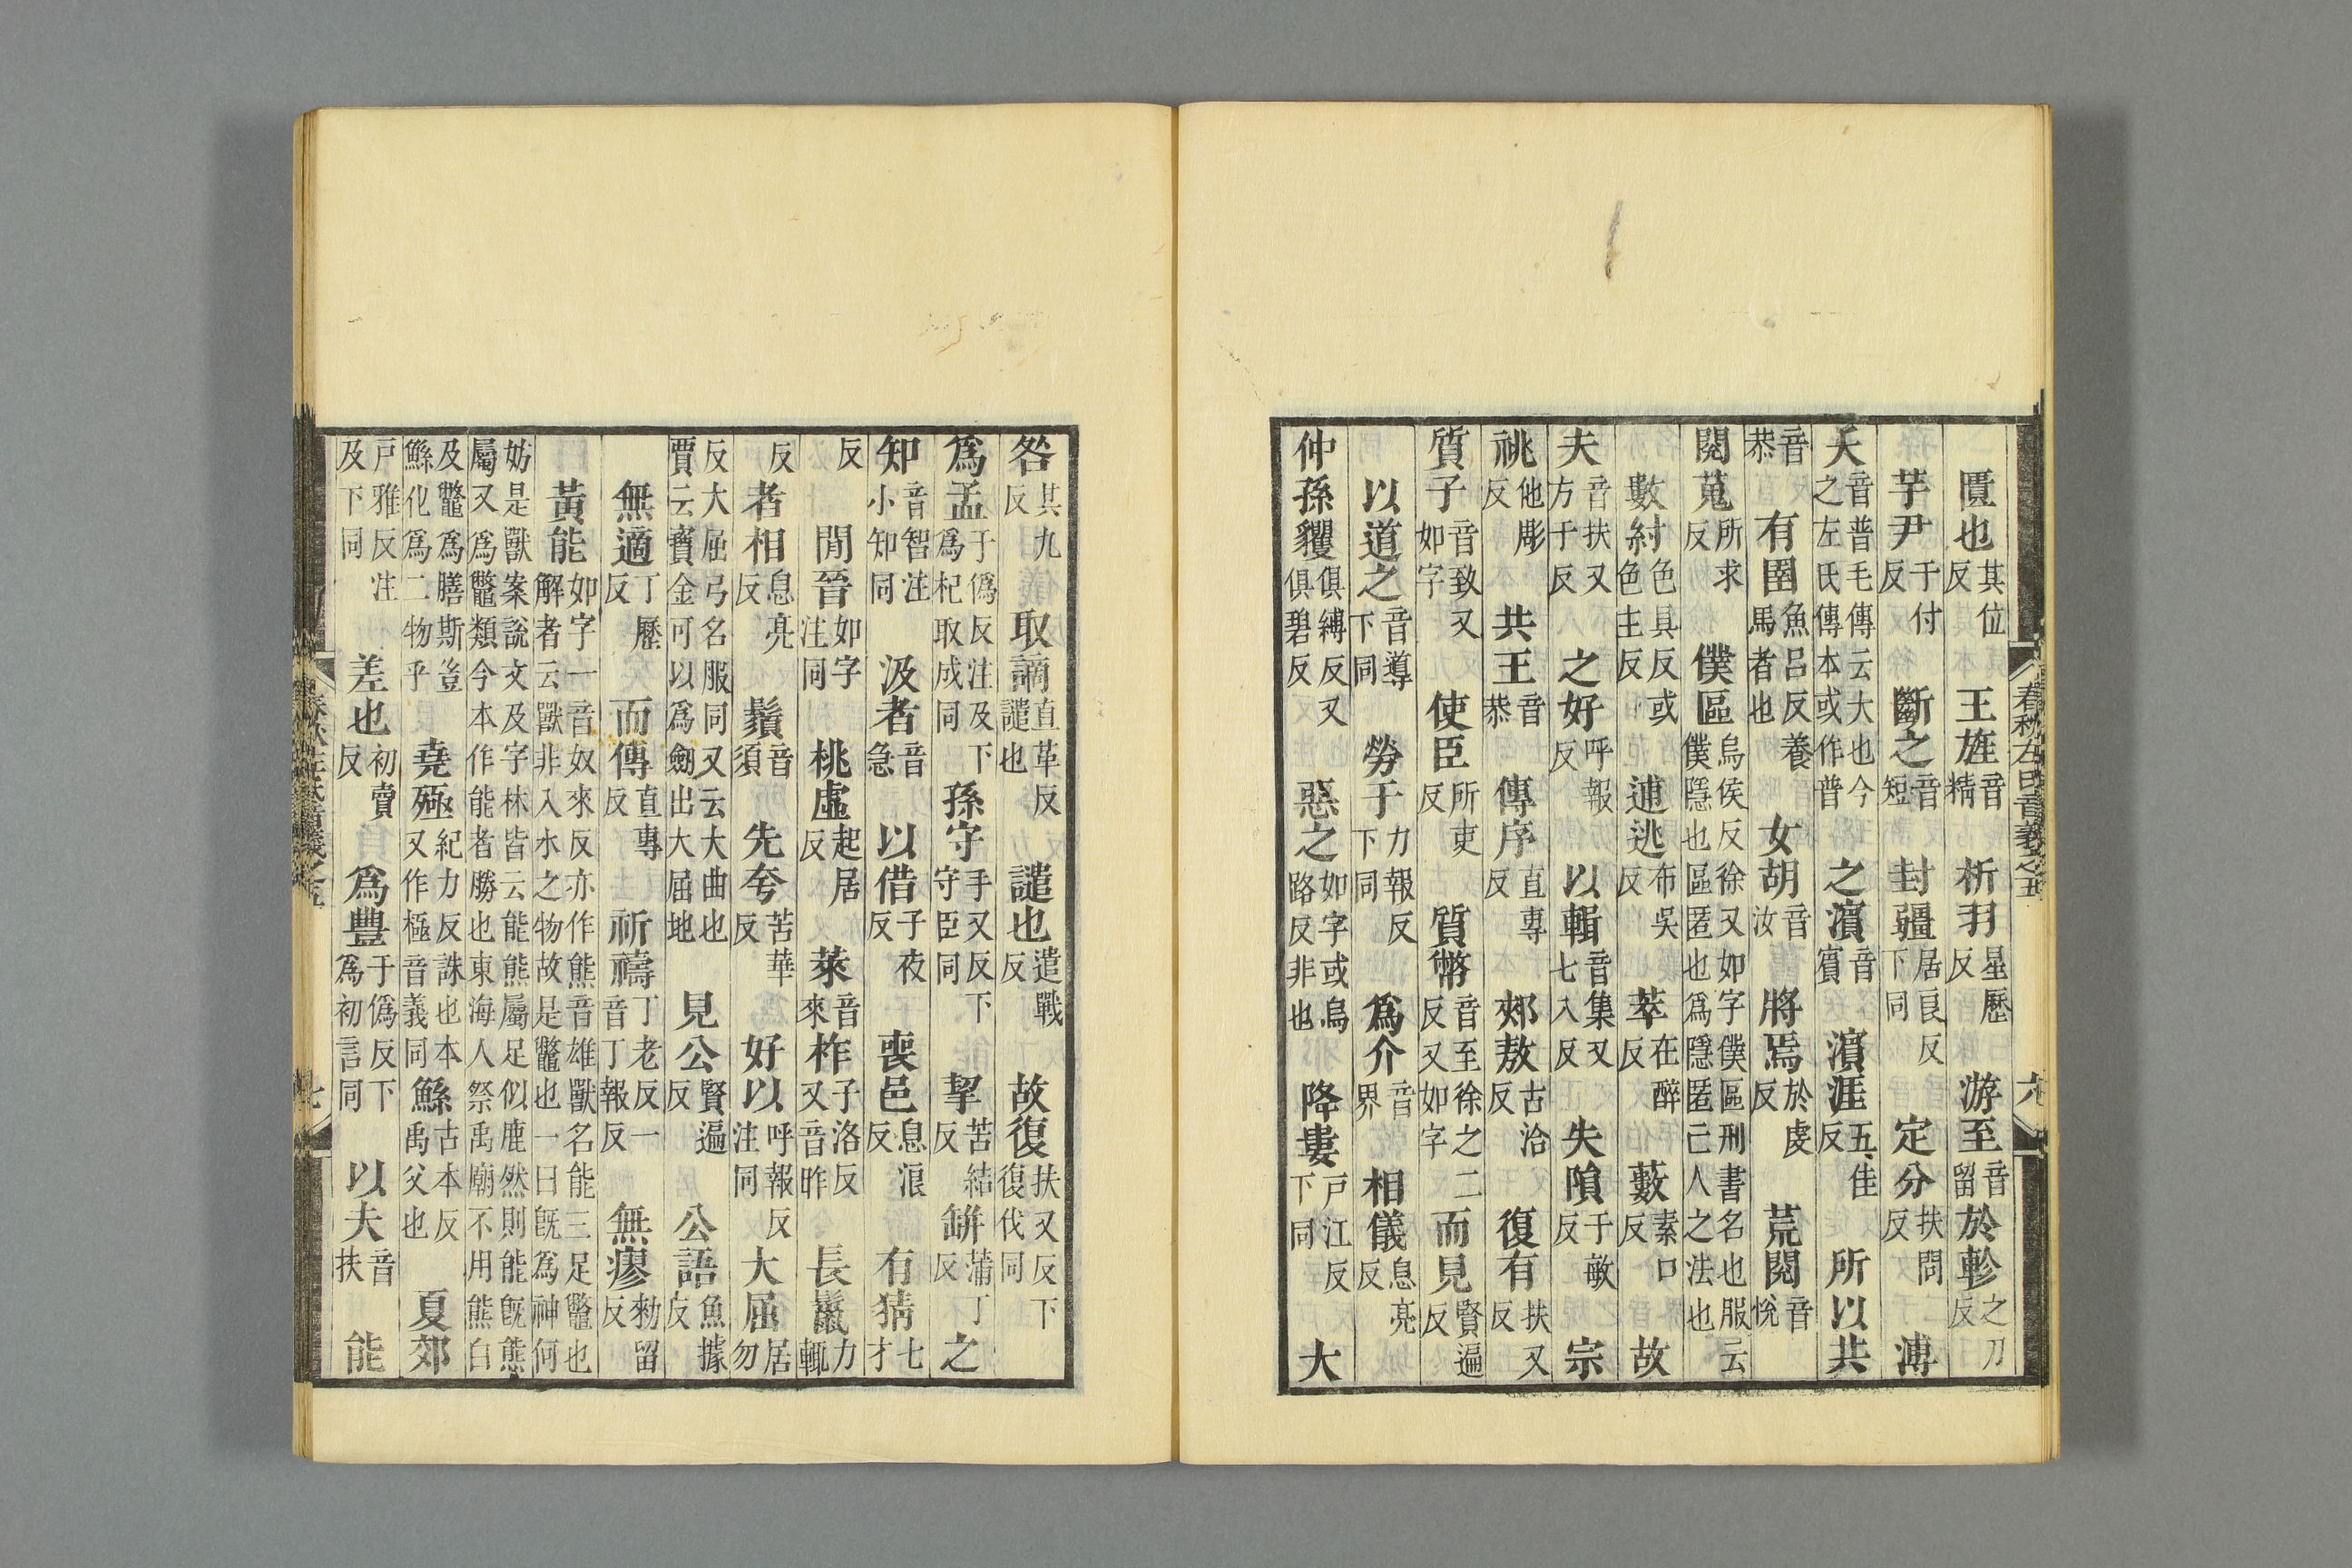 匱也其位反 王旌音精 析羽星歷反 游至音留 於軫之刀反
芋尹于付反 斷之音短 封疆居良反下同 定分扶問反 溥
天音普毛傳云大也今之左氏傳本或作普 之濱音賓 濱涯五佳反 所以共
音恭 有圉魚呂反養馬者也 女胡音汝 將焉於虔反 荒閱音悅
閱蒐所求反 僕區烏侯反徐又如字僕區刑書名也服云僕隱也區匿也爲隱匿亡人之法也
數紂色具反或色主反 逋逃布吳反 萃在醉反 藪素口反 故
夫音扶又方于反 之好呼報反 以輯音集又七入反 失隕于敏反 宗
祧他彫反 共王音恭 傳序直專反 郟敖古洽反 復有扶又反
質子音致又如字 使臣所吏反 質幣音至徐之二反又如字 而見賢遍反
以道之音導下同 勞于力報反下同 爲介音界 相儀息亮反
仲孫貜俱縛反又俱碧反 惡之如字或烏路反非也 降婁戸江反下同 大
春秋左氏音義之五 六
咎其九反 取謫直革反譴也 譴也遣戰反 故復扶又反下復伐同
爲孟于僞反注及下爲杞取成同 孫守手又反下守臣同 挈苦結反 缾蒲丁反 之
知音智注小知同 汲者音急 以借子夜反 喪邑息浪反 有猜七才
反 閒晉如字注同 桃虛起居反 萊音來 柞子洛反又音昨 長鬣力輒
反 者相息亮反 鬚音須 先夸苦華反 好以呼報反注同 大屈居勿
反大屈弓名服同又云大曲也賈云寶金可以爲劒出大屈地 見公賢遍反 公語魚據反
無適丁歷反 而傳直專反 祈禱丁老反一音丁報反 無瘳勑留反
黃能如字一音奴來反亦作熊音雄獸名能三足鼈也解者云獸非入水之物故是鼈也一曰旣爲神何
妨是獸案說文及字林皆云能熊屬足似鹿然則能旣熊屬又爲鼈類今本作能者勝也東海人祭禹廟不用熊白
及鼈爲膳斯豈鯀化爲二物乎 堯殛紀力反誅也本又作極音義同 鯀古本反禹父也 夏郊
戸雅反注及下同 差也初賣反 爲豐于僞反下爲初言同 以夫音扶 能
七